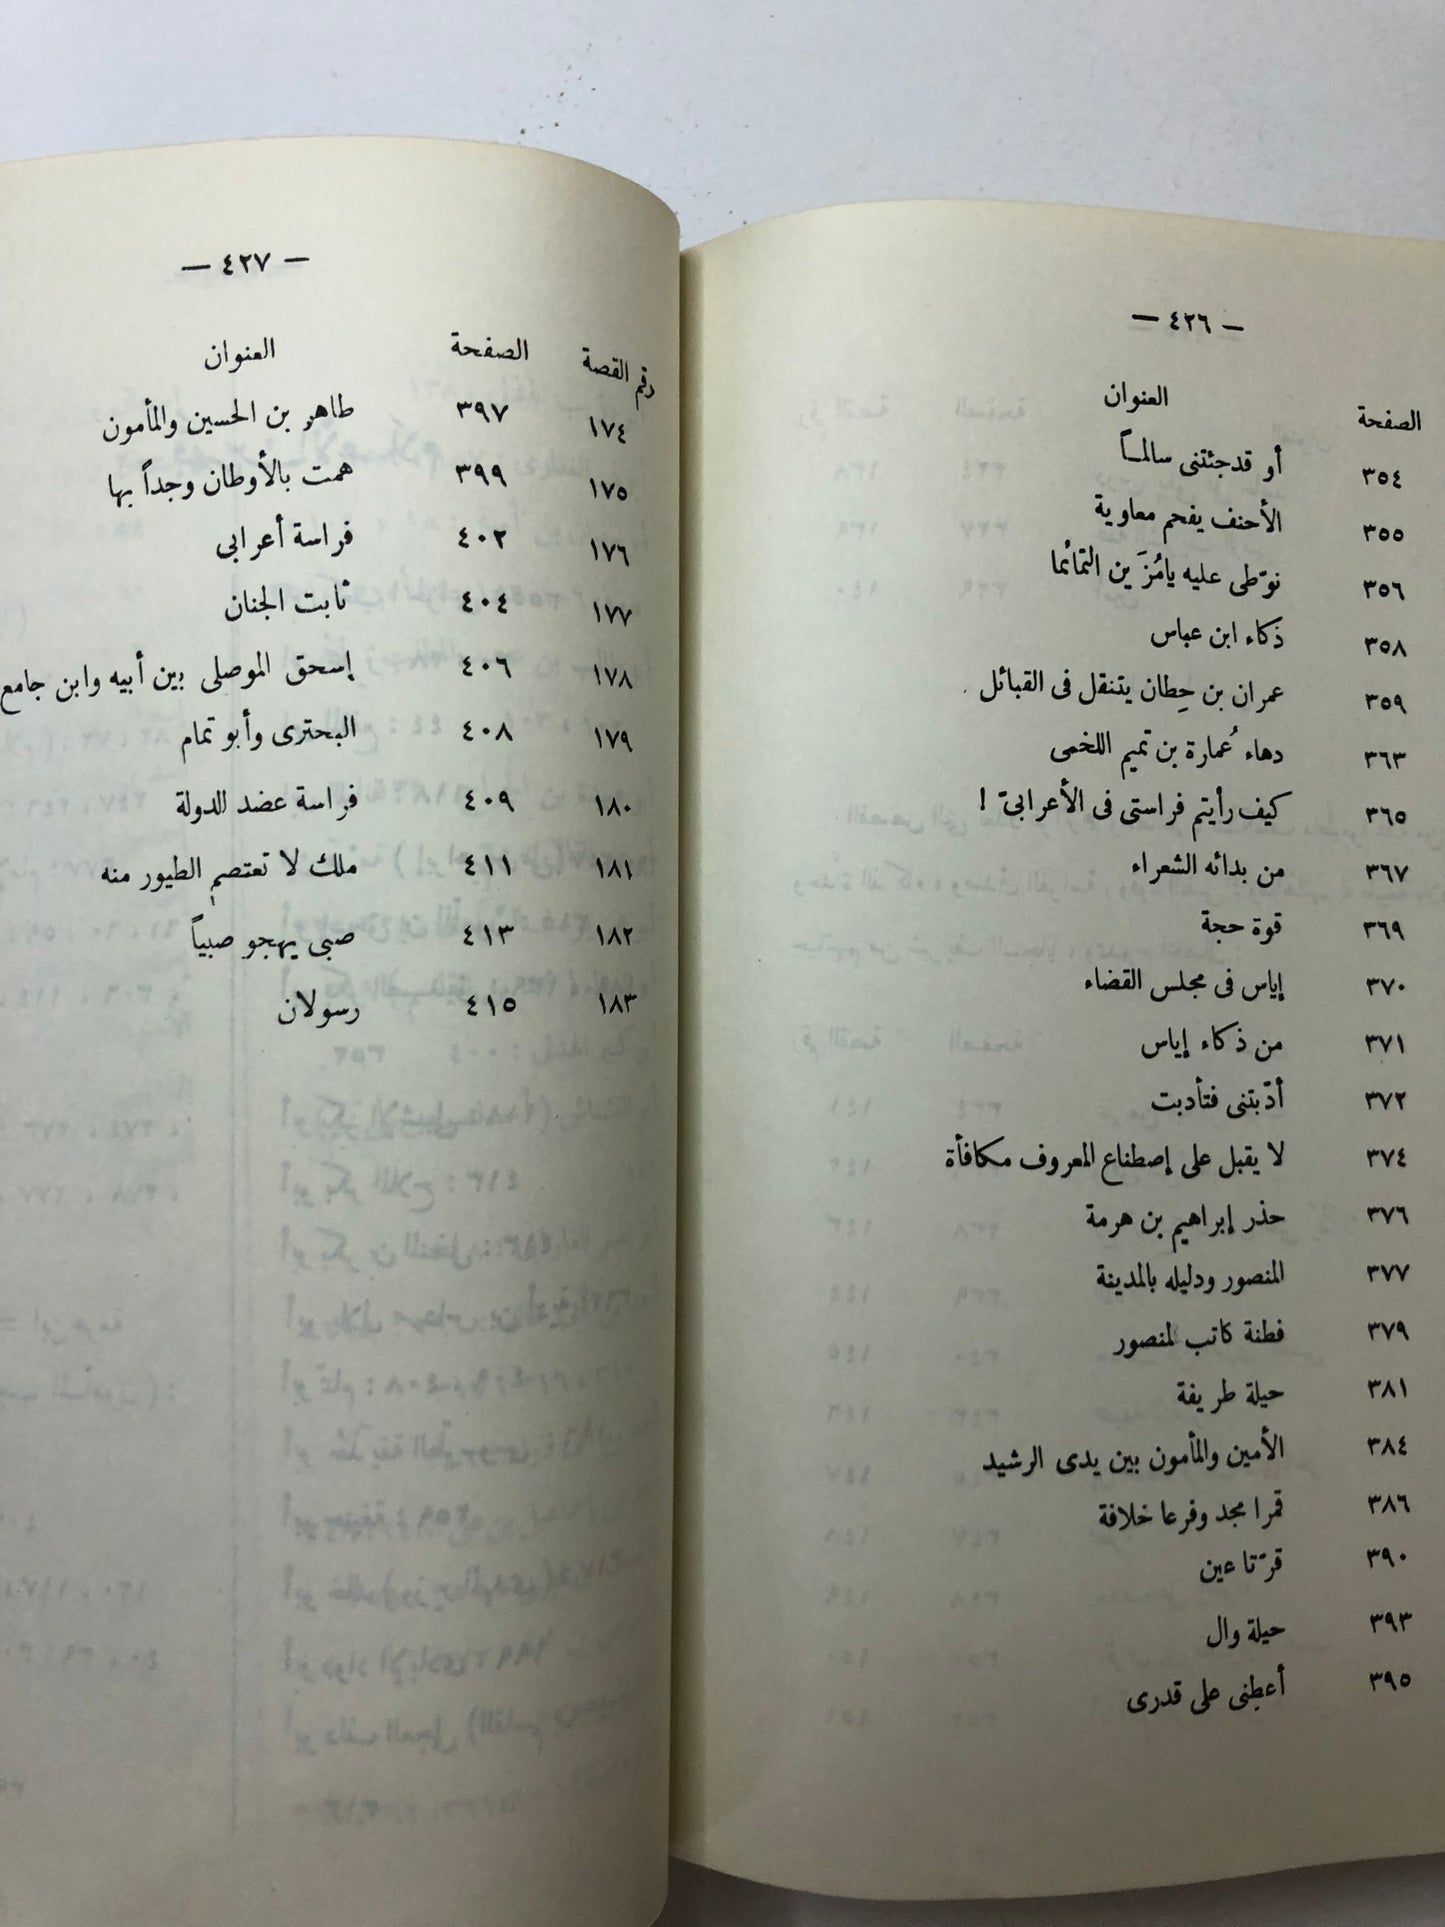 — ٤٢٦ —
الصفحة العنوان
٣٥٤ أو قدجئتنى سالمـاً
٣٥٥ الأحنف يفحم معاوية
٣٥٦ نوّطى عليه يامُزَين التمائما
٣٥٨ ذكاء ابن عباس
٣٥٩ عمران بن حِطان يتنقل فى القبائل
٣٦٣ دهاء عُمارة بن تميم اللخمى
٣٦٥ كيف رأيتم فراستى فى الأعرابىّ !
٣٦٧ من بدائه الشعراء
٣٦٩ قوة حجة
٣٧٠ إياس فى مجلس القضاء
٣٧١ من ذكاء إياس
٣٧٢ أدّبتنى فتأدبت
٣٧٤ لا يقبل على إصطناع المعروف مكافأة
٣٧٦ حذر إبراهيم بن هرمة
٣٧٧ المنصور ودليله بالمدينة
٣٧٩ فطنة كاتب لمنصور
٣٨١ حيلة طريفة
٣٨٤ الأمين والمأمون بين يدى الرشيد
٣٨٦ قمرا مجد وفرعا خلافة
٣٩٠ قرّتا عين
٣٩٣ حيلة وال
٣٩٥ أعطنى على قدرى
— ٤٢٧ —
رقم القصة الصفحة العنوان
١٧٤ ٣٩٧ طاهر بن الحسين والمأمون
١٧٥ ٣٩٩ همت بالأوطان وجداً بها
١٧٦ ٤٠٢ فراسة أعرابى
١٧٧ ٤٠٤ ثابت الجنان
١٧٨ ٤٠٦ إسحق الموصلى بين أبيه وابن جامع
١٧٩ ٤٠٨ البحترى وأبو تمام
١٨٠ ٤٠٩ فراسة عضد الدولة
١٨١ ٤١١ ملك لا تعتصم الطيور منه
١٨٢ ٤١٣ صبى يهجو صبياً
١٨٣ ٤١٥ رسولان